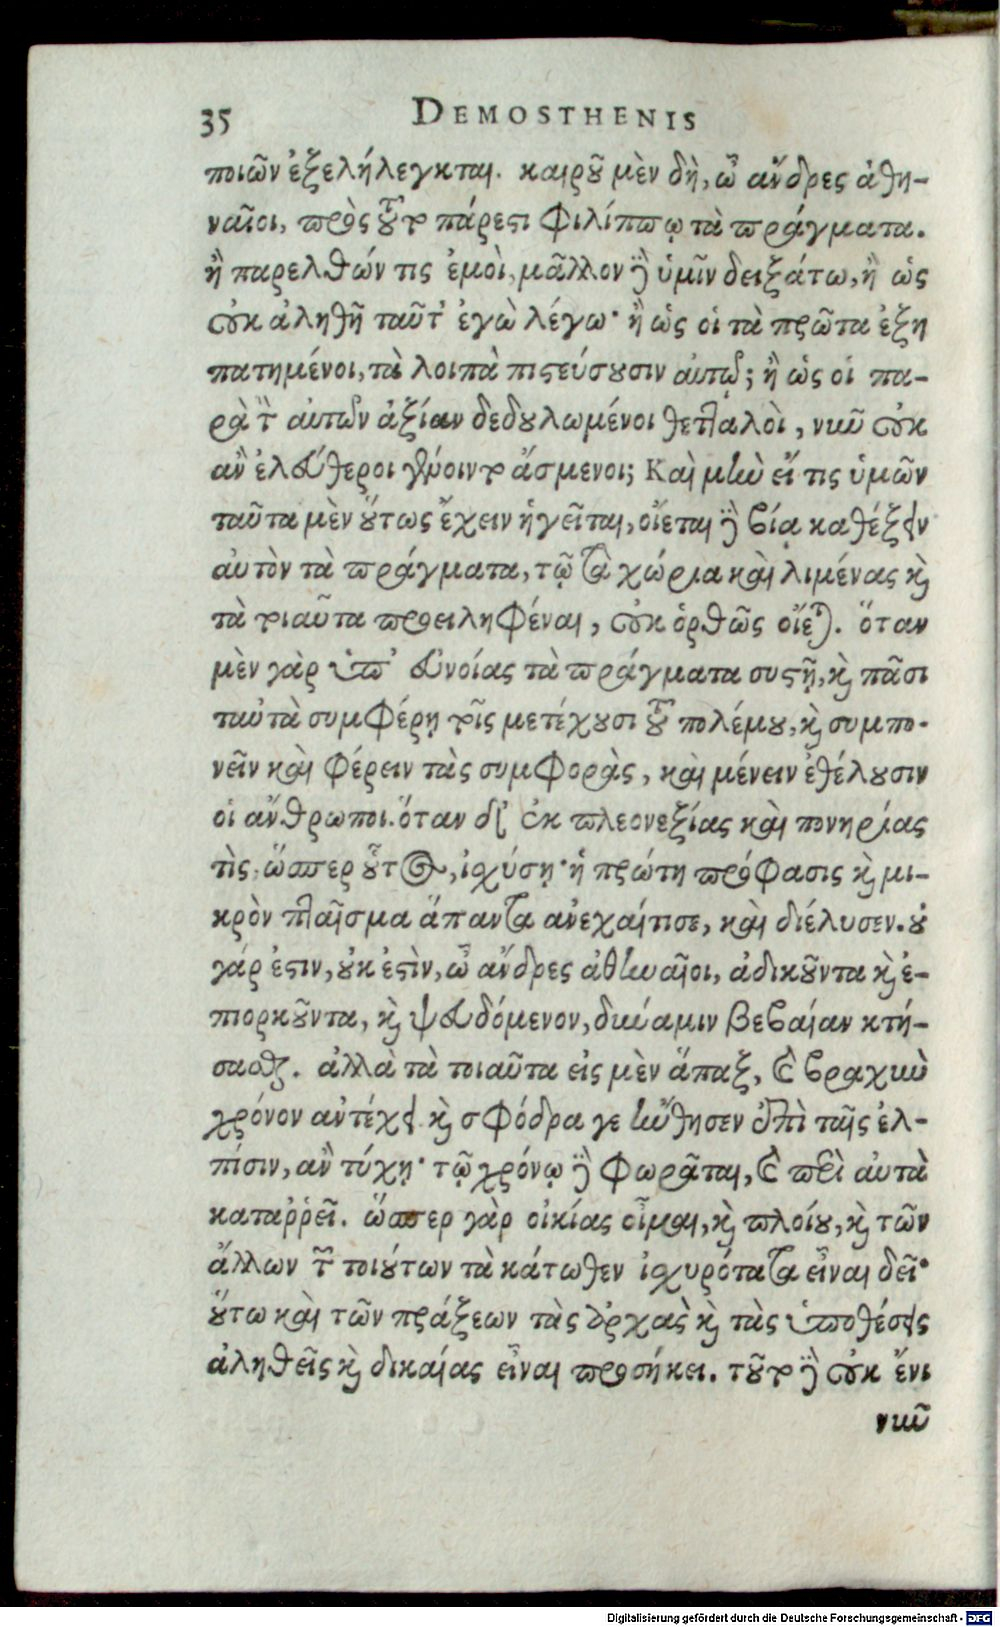 35 DEMOSTHENIS
ποιῶν ἐξελήλεγκται. καιροῦ μὲν δὴ, ὦ ἄνδρες ἀθη-
ναῖοι, πρὸς τοῦτο πάρεστι Φιλίππῳ τὰ πράγματα.
ἢ παρελθών τις ἐμοὶ, μᾶλλον δὲ ὑμῖν δειξάτω, ἢ ὡς
οὐκ ἀληθῆ ταῦτ' ἐγὼ λέγω· ἢ ὡς οἱ τὰ πρῶτα ἐξη
πατημένοι, τὰ λοιπὰ πιστεύσουσιν αὐτῷ; ἢ ὡς οἱ πα-
ρὰ τὴν αὐτῶν ἀξίαν δεδουλωμένοι θετταλοὶ, νῦν οὐκ
ἂν ἐλεύθεροι γένοιντο ἄσμενοι; Καὶ μὴν εἴ τις ὑμῶν
ταῦτα μὲν οὕτως ἔχειν ἡγεῖται, οἴεται δὲ βίᾳ καθέξειν
αὐτὸν τὰ πράγματα, τῷ τὰ χώρια καὶ λιμένας καὶ
τὰ τοιαῦτα προειληφέναι, οὐκ ὀρθῶς οἴεται. ὅταν
μὲν γὰρ ὑπ' εὐνοίας τὰ πράγματα συστῇ, καὶ πᾶσι
ταὐτὰ συμφέρῃ τοῖς μετέχουσι τοῦ πολέμου, καὶ συμπο-
νεῖν καὶ φέρειν τὰς συμφορὰς, καὶ μένειν ἐθέλουσιν
οἱ ἄνθρωποι. ὅταν δ' ἐκ πλεονεξίας καὶ πονηρίας
τὶς, ὥσπερ οὗτος, ἰσχύσῃ· ἡ πρώτη πρόφασις καὶ μι-
κρὸν πταῖσμα ἅπαντα ἀνεχαίτισε, καὶ διέλυσεν. οὐ
γάρ ἐστιν, οὐκ ἐστὶν, ὦ ἄνδρες ἀθηναῖοι, ἀδικοῦντα καὶ ἐ-
πιορκοῦντα, καὶ ψευδόμενον, δύναμιν βεβαίαν κτή-
σασθαι. ἀλλὰ τὰ τοιαῦτα εἰς μὲν ἅπαξ, καὶ βραχὺν
χρόνον ἀντέχει καὶ σφόδρα γε ἤνθησεν ἐπὶ ταῖς ἐλ-
πίσιν, ἂν τύχῃ· τῷ χρόνῳ δὲ φωρᾶται, καὶ περὶ αὐτὰ
καταῤῥεῖ. ὥσπερ γὰρ οἰκίας οἶμαι, καὶ πλοίου, καὶ τῶν
ἄλλων τῶν τοιούτων τὰ κάτωθεν ἰσχυρότατα εἶναι δεῖ·
οὕτω καὶ τῶν πράξεων τὰς ἀρχὰς καὶ τὰς ὑποθέσεις
ἀληθεῖς καὶ δικαίας εἶναι προσήκει. τοῦτο δὲ οὐκ ἔνι
νῦν
Digitalisierung gefördert durch die Deutsche Forschungsgemeinschaft - DFG